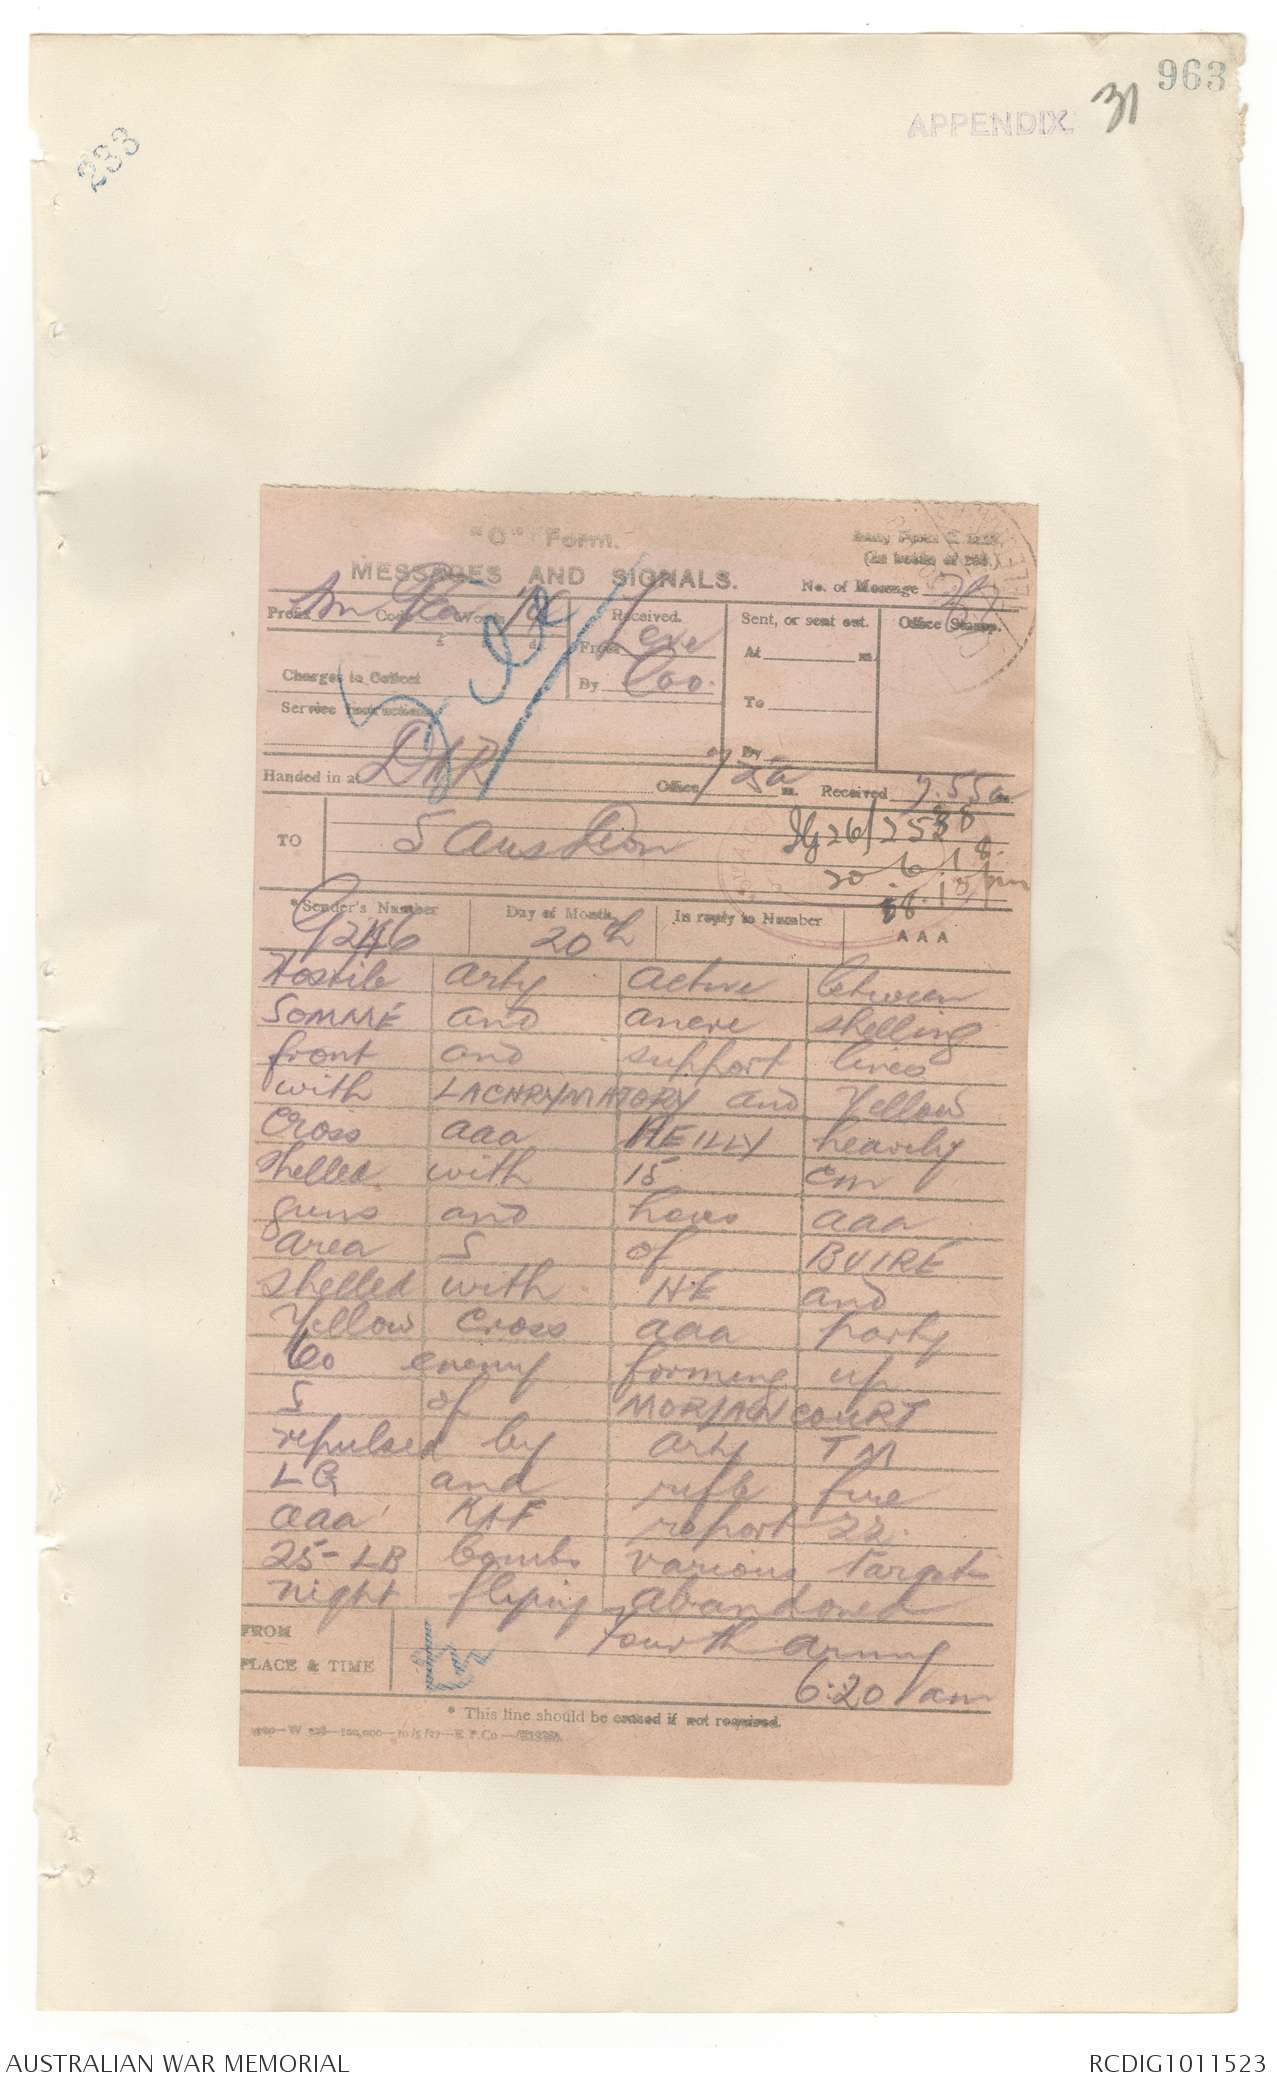 963
APPENDIX. 31
233
"C" Form.
MESSAGES AND SIGNALS.
No. of Message
Prefix Sm Code Words
Received.
From
By Coo.
Sent, or sent out.
At m.
To
By
Office Stamp.
Charges to Collect
Service Instructions
Handed in at DHR Office m. Received 7.55a m.
TO 5 Aus Divn
20.6.18.
*Sender's Number
Day of Month
In reply to Number
G246 20th AAA
Hostile arty active between
SOMME and ancre shelling
front and support lines
with LACHRYMATORY and Yellow
Cross aaa HEILLY heavily
shelled with 15 cm
guns and hows aaa
area S of BUIRE
shelled with HE and
Yellow Cross aaa party
60 enemy forming up
S of MORLANCOURT
repulsed by arty TM
LG and rifle fire
aaa RAF report 22
25-LB bombs various targets
night flying abandoned
FROM
PLACE & TIME
Fourth army
6:20 am
* This line should be erased if not required.
AUSTRALIAN WAR MEMORIAL
RCDIG1011523